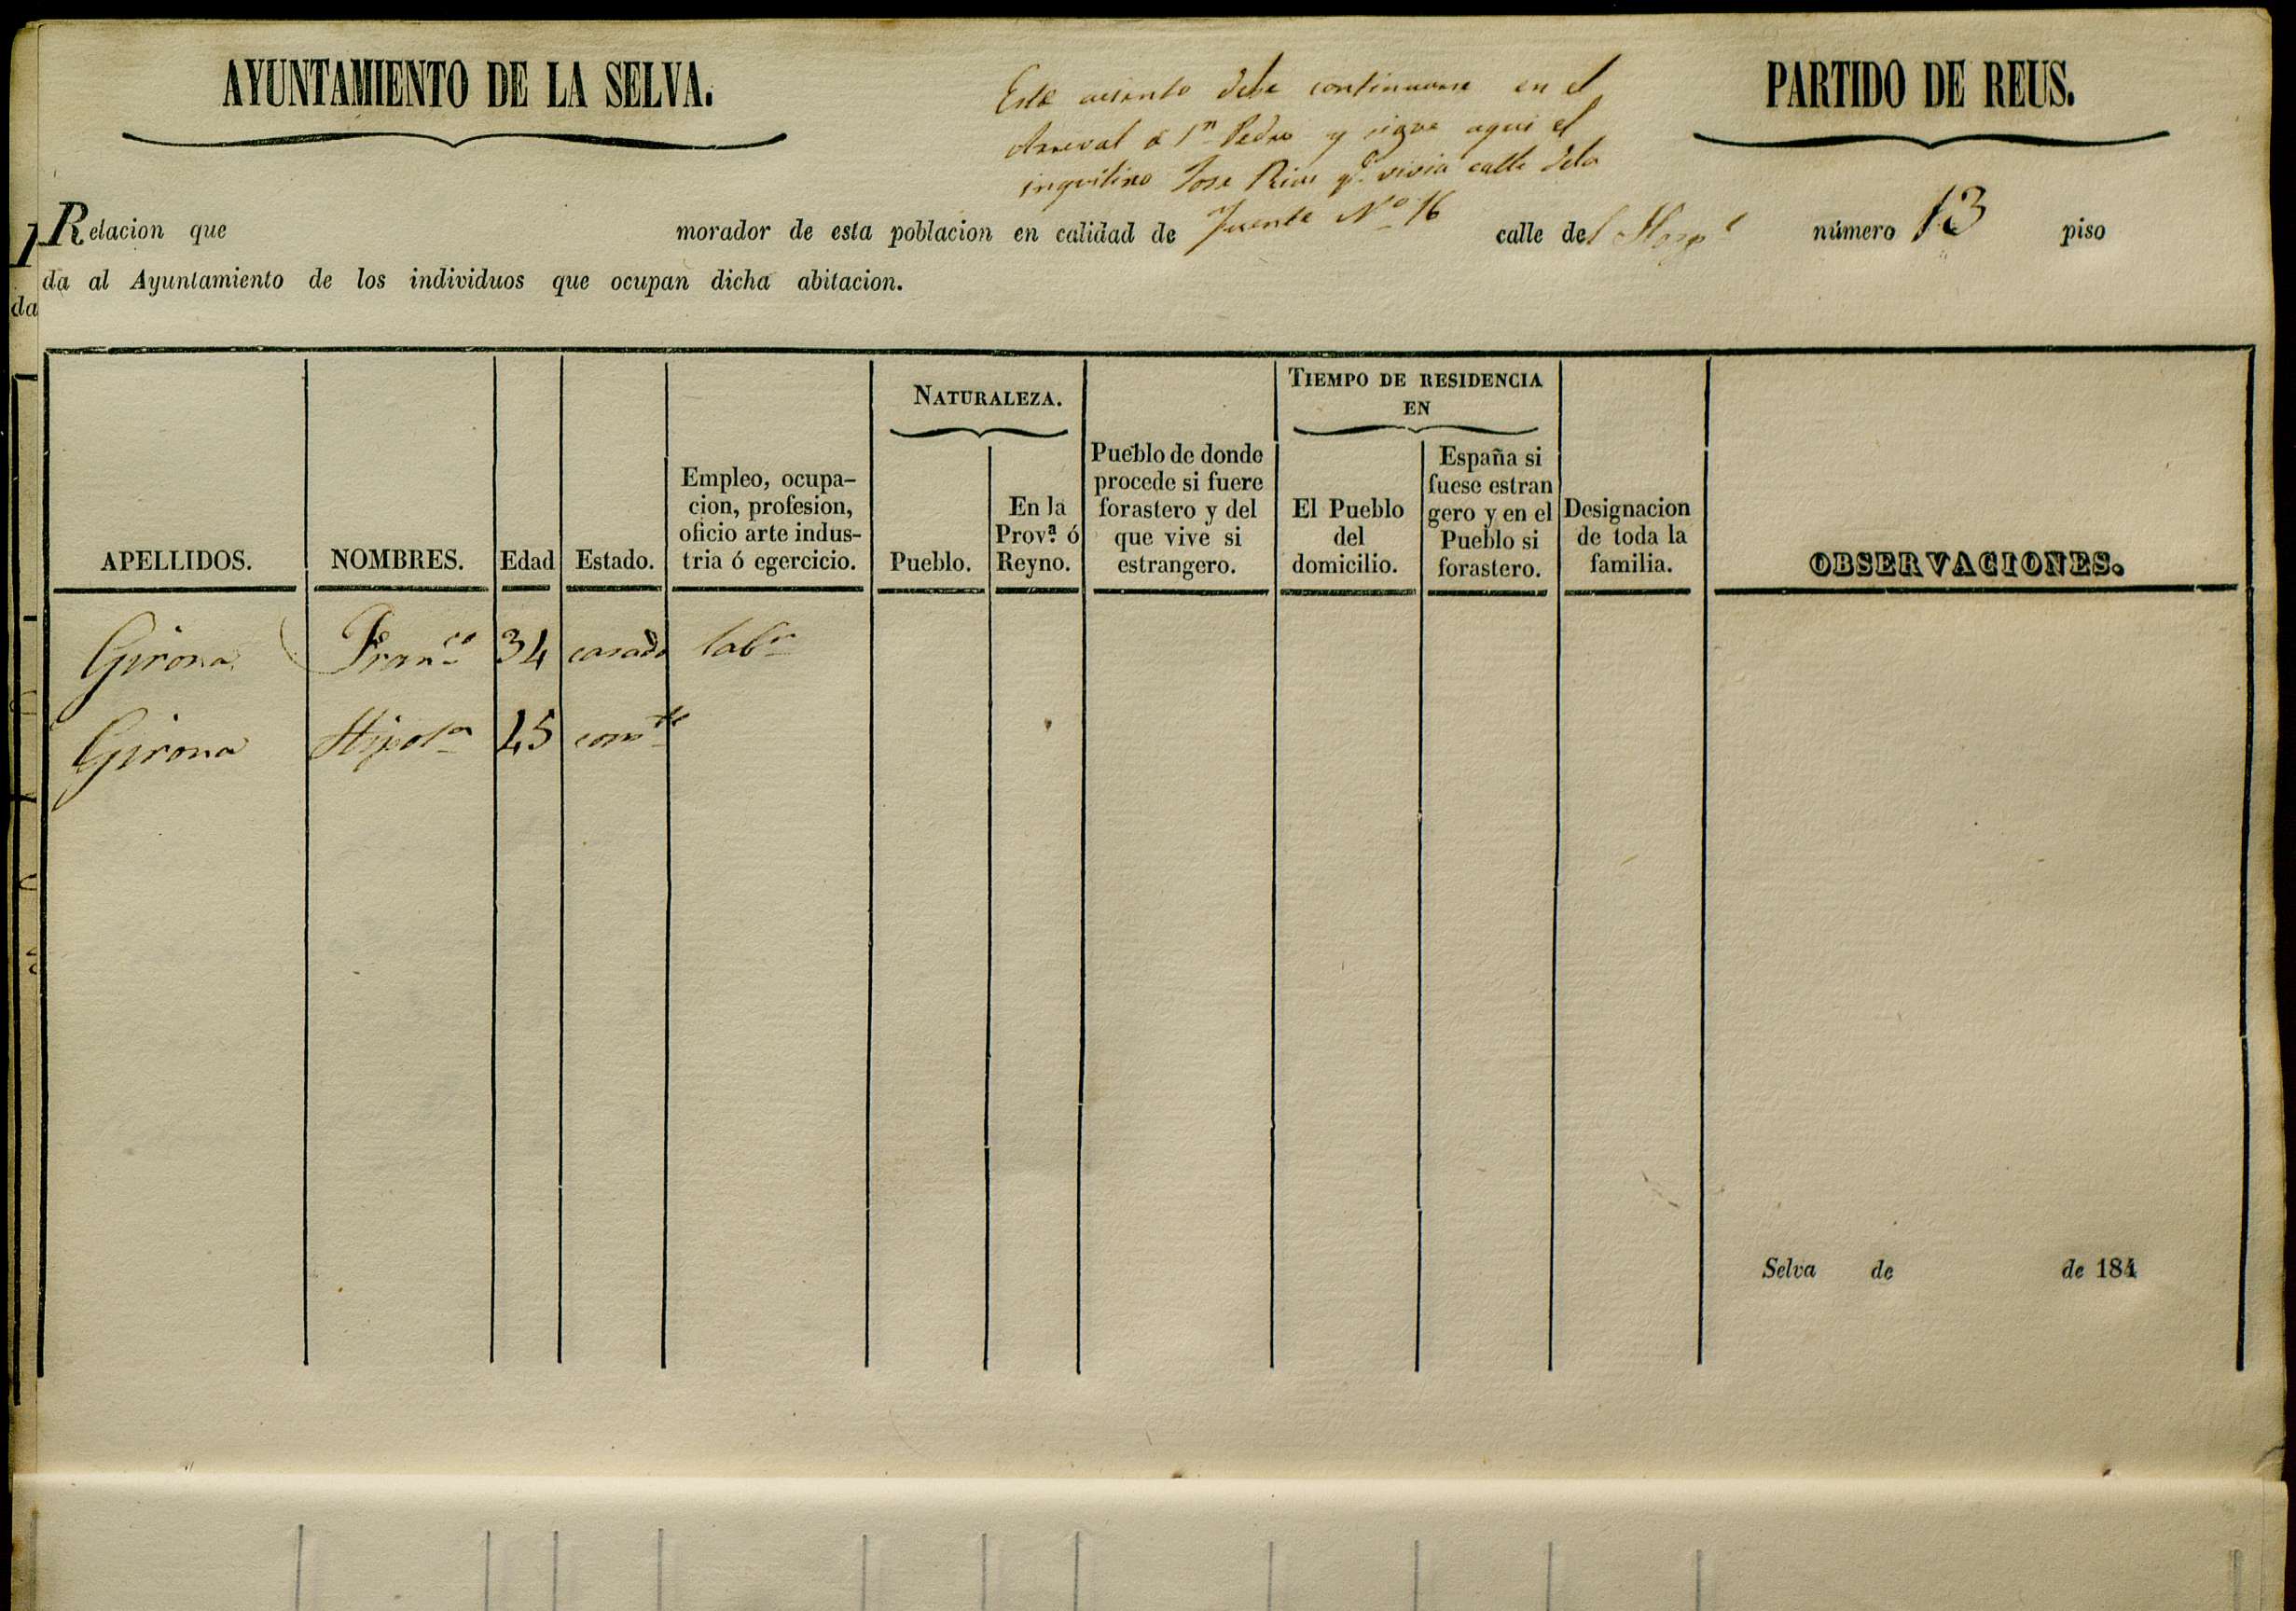 AYUNTAMIENTO DE LA SELVA.
PARTIDO DE REUS.
Este asiento debe continuarse en el
Arreval á Sn Pedro y sigue aqui el
inquilino Jose Rius qe. vivia calle dela
Fuente No 16
Relacion que morador de esta poblacion en calidad de calle del Hospl número 13 piso
da al Ayuntamiento de los individuos que ocupan dicha abitacion.
da
APELLIDOS.
NOMBRES.
Edad
Estado.
Empleo, ocupa-
cion, profesion,
oficio arte indus-
tria ó egercicio.
NATURALEZA.
Pueblo.
En la
Prov.ª ó
Reyno.
Pueblo de donde
procede si fuere
forastero y del
que vive si
estrangero.
TIEMPO DE RESIDENCIA
EN
El Pueblo
del
domicilio.
España si
fuese estran
gero y en el
Pueblo si
forastero.
Designacion
de toda la
familia.
OBSERVACIONES.
Girona Franco 34 casado labr
Girona 45 conste
Selva de de 184